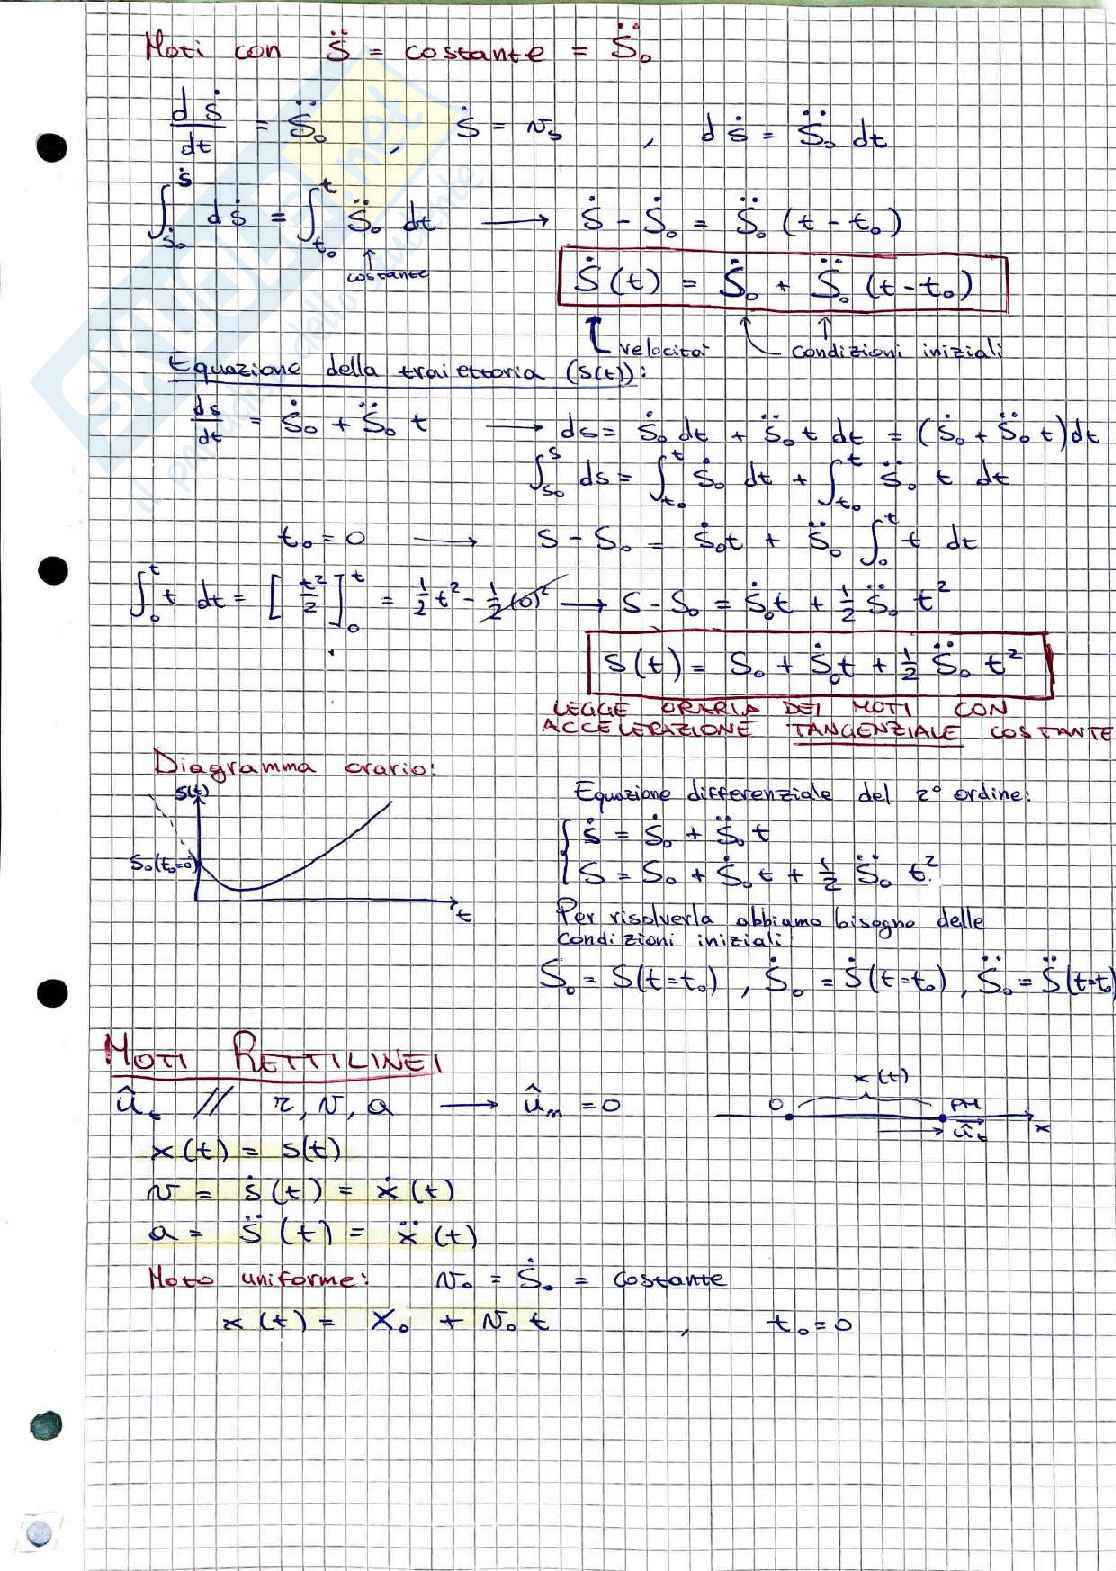 Moti con S̈ = costante = S̈₀
dṡ/dt = S̈₀ , ṡ = v_s , dṡ = S̈₀ dt
∫_{ṡ₀}^{ṡ} dṡ = ∫_{t₀}^{t} S̈₀ dt ⟶ Ṡ - Ṡ₀ = S̈₀ (t - t₀)
costante
Ṡ(t) = Ṡ₀ + S̈₀ (t - t₀)
velocità condizioni iniziali
Equazione della traiettoria (s(t)):
ds/dt = Ṡ₀ + S̈₀ t ⟶ ds = Ṡ₀ dt + S̈₀ t dt = (Ṡ₀ + S̈₀ t)dt
∫_{S₀}^{S} ds = ∫_{t₀}^{t} Ṡ₀ dt + ∫_{t₀}^{t} S̈₀ t dt
t₀ = 0 ⟶ S - S₀ = Ṡ₀t + S̈₀ ∫₀^t t dt
∫₀^t t dt = [t²/2]₀^t = 1/2 t² - 1/2 (0)² ⟶ S - S₀ = Ṡ₀t + 1/2 S̈₀ t²
S(t) = S₀ + Ṡ₀t + 1/2 S̈₀ t²
LEGGE ORARIA DEI MOTI CON
ACCELERAZIONE TANGENZIALE COSTANTE
Diagramma orario:
S(t)
S₀(t₀=0)
t
Equazione differenziale del 2° ordine:
{ Ṡ = Ṡ₀ + S̈₀ t
S = S₀ + Ṡ₀ t + 1/2 S̈₀ t²
Per risolverla abbiamo bisogno delle
condizioni iniziali
S₀ = S(t=t₀) , Ṡ₀ = Ṡ(t=t₀) , S̈₀ = S̈(t=t₀)
MOTI RETTILINEI
û_t // r, v, a ⟶ û_n = 0
x(t)
O PM
û_t x
x(t) = s(t)
v = ṡ(t) = ẋ(t)
a = S̈(t) = ẍ(t)
Moto uniforme: v₀ = Ṡ₀ = costante
x(t) = X₀ + v₀ t , t₀ = 0
SKUOLA.net
il paradiso dello studente